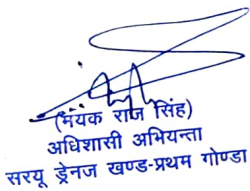 (मयंक राज सिंह)
अधिशासी अभियन्ता
सरयू ड्रेनज खण्ड-प्रथम गोण्डा